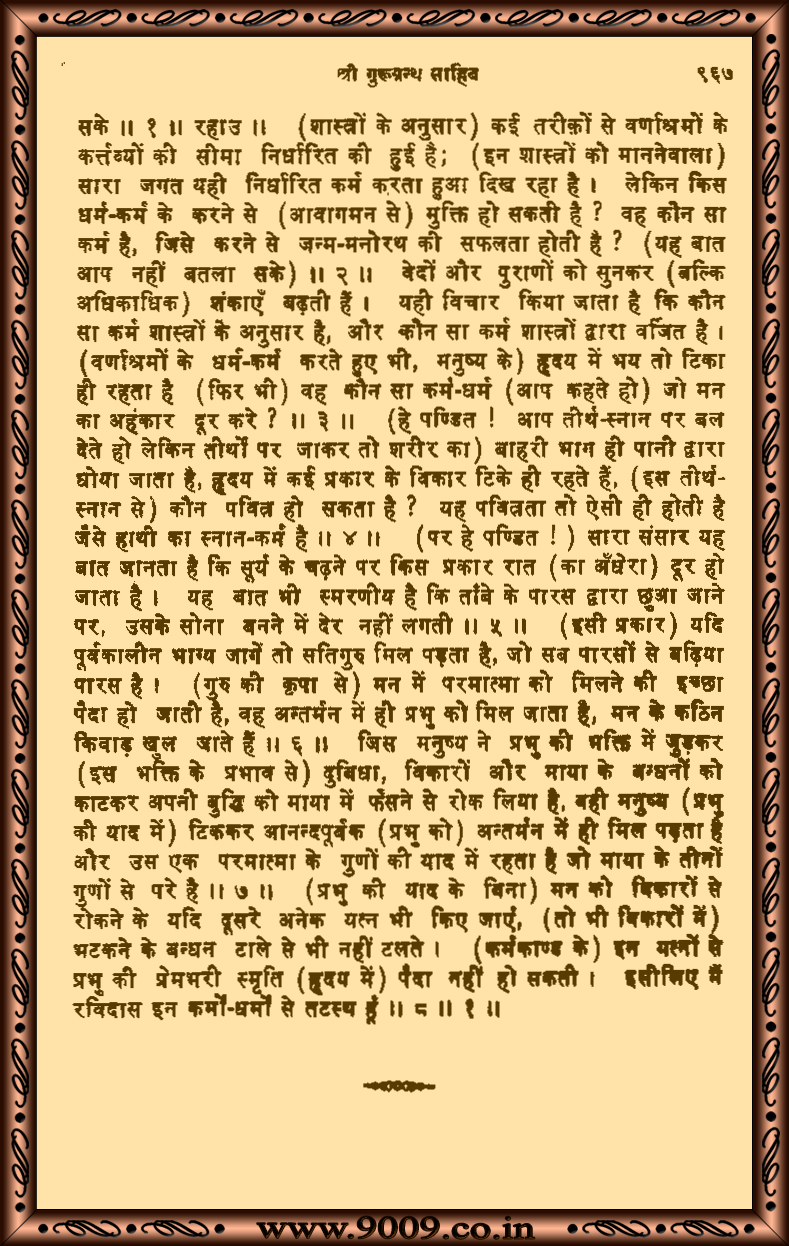 श्री गुरूग्रन्थ साहिब ९६७
सके ॥ १ ॥ रहाउ ॥ (शास्त्रों के अनुसार) कई तरीक़ों से वर्णाश्रमों के
कर्त्तव्यों की सीमा निर्धारित की हुई है; (इन शास्त्रों को माननेवाला)
सारा जगत यही निर्धारित कर्म करता हुआ दिख रहा है । लेकिन किस
धर्म-कर्म के करने से (आवागमन से) मुक्ति हो सकती है ? वह कौन सा
कर्म है, जिसे करने से जन्म-मनोरथ की सफलता होती है ? (यह बात
आप नहीं बतला सके) ॥ २ ॥ वेदों और पुराणों को सुनकर (बल्कि
अधिकाधिक) शंकाएँ बढ़ती हैं । यही विचार किया जाता है कि कौन
सा कर्म शास्त्रों के अनुसार है, और कौन सा कर्म शास्त्रों द्वारा वर्जित है ।
(वर्णाश्रमों के धर्म-कर्म करते हुए भी, मनुष्य के) हृदय में भय तो टिका
ही रहता है (फिर भी) वह कौन सा कर्म-धर्म (आप कहते हो) जो मन
का अहंकार दूर करे ? ॥ ३ ॥ (हे पण्डित ! आप तीर्थ-स्नान पर बल
देते हो लेकिन तीर्थों पर जाकर तो शरीर का) बाहरी भाग ही पानी द्वारा
धोया जाता है, हृदय में कई प्रकार के विकार टिके ही रहते हैं, (इस तीर्थ-
स्नान से) कौन पवित्र हो सकता है ? यह पवित्रता तो ऐसी ही होती है
जैसे हाथी का स्नान-कर्म है ॥ ४ ॥ (पर हे पण्डित ! ) सारा संसार यह
बात जानता है कि सूर्य के चढ़ने पर किस प्रकार रात (का अँधेरा) दूर हो
जाता है । यह बात भी स्मरणीय है कि ताँबे के पारस द्वारा छुआ जाने
पर, उसके सोना बनने में देर नहीं लगती ॥ ५ ॥ (इसी प्रकार) यदि
पूर्वकालीन भाग्य जागें तो सतिगुरु मिल पड़ता है, जो सब पारसों से बढ़िया
पारस है । (गुरु की कृपा से) मन में परमात्मा को मिलने की इच्छा
पैदा हो जाती है, वह अन्तर्मन में ही प्रभु को मिल जाता है, मन के कठिन
किवाड़ खुल जाते हैं ॥ ६ ॥ जिस मनुष्य ने प्रभु की भक्ति में जुड़कर
(इस भक्ति के प्रभाव से) दुबिधा, विकारों और माया के बन्धनों को
काटकर अपनी बुद्धि को माया में फँसने से रोक लिया है, वही मनुष्य (प्रभु
की याद में) टिककर आनन्दपूर्वक (प्रभु को) अन्तर्मन में ही मिल पड़ता है
और उस एक परमात्मा के गुणों की याद में रहता है जो माया के तीनों
गुणों से परे है ॥ ७ ॥ (प्रभु की याद के बिना) मन को विकारों से
रोकने के यदि दूसरे अनेक यत्न भी किए जाएँ, (तो भी विकारों में)
भटकने के बन्धन टाले से भी नहीं टलते । (कर्मकाण्ड के) इन यत्नों से
प्रभु की प्रेमभरी स्मृति (हृदय में) पैदा नहीं हो सकती । इसीलिए मैं
रविदास इन कर्मों-धर्मों से तटस्थ हूँ ॥ ८ ॥ १ ॥
www.9009.co.in